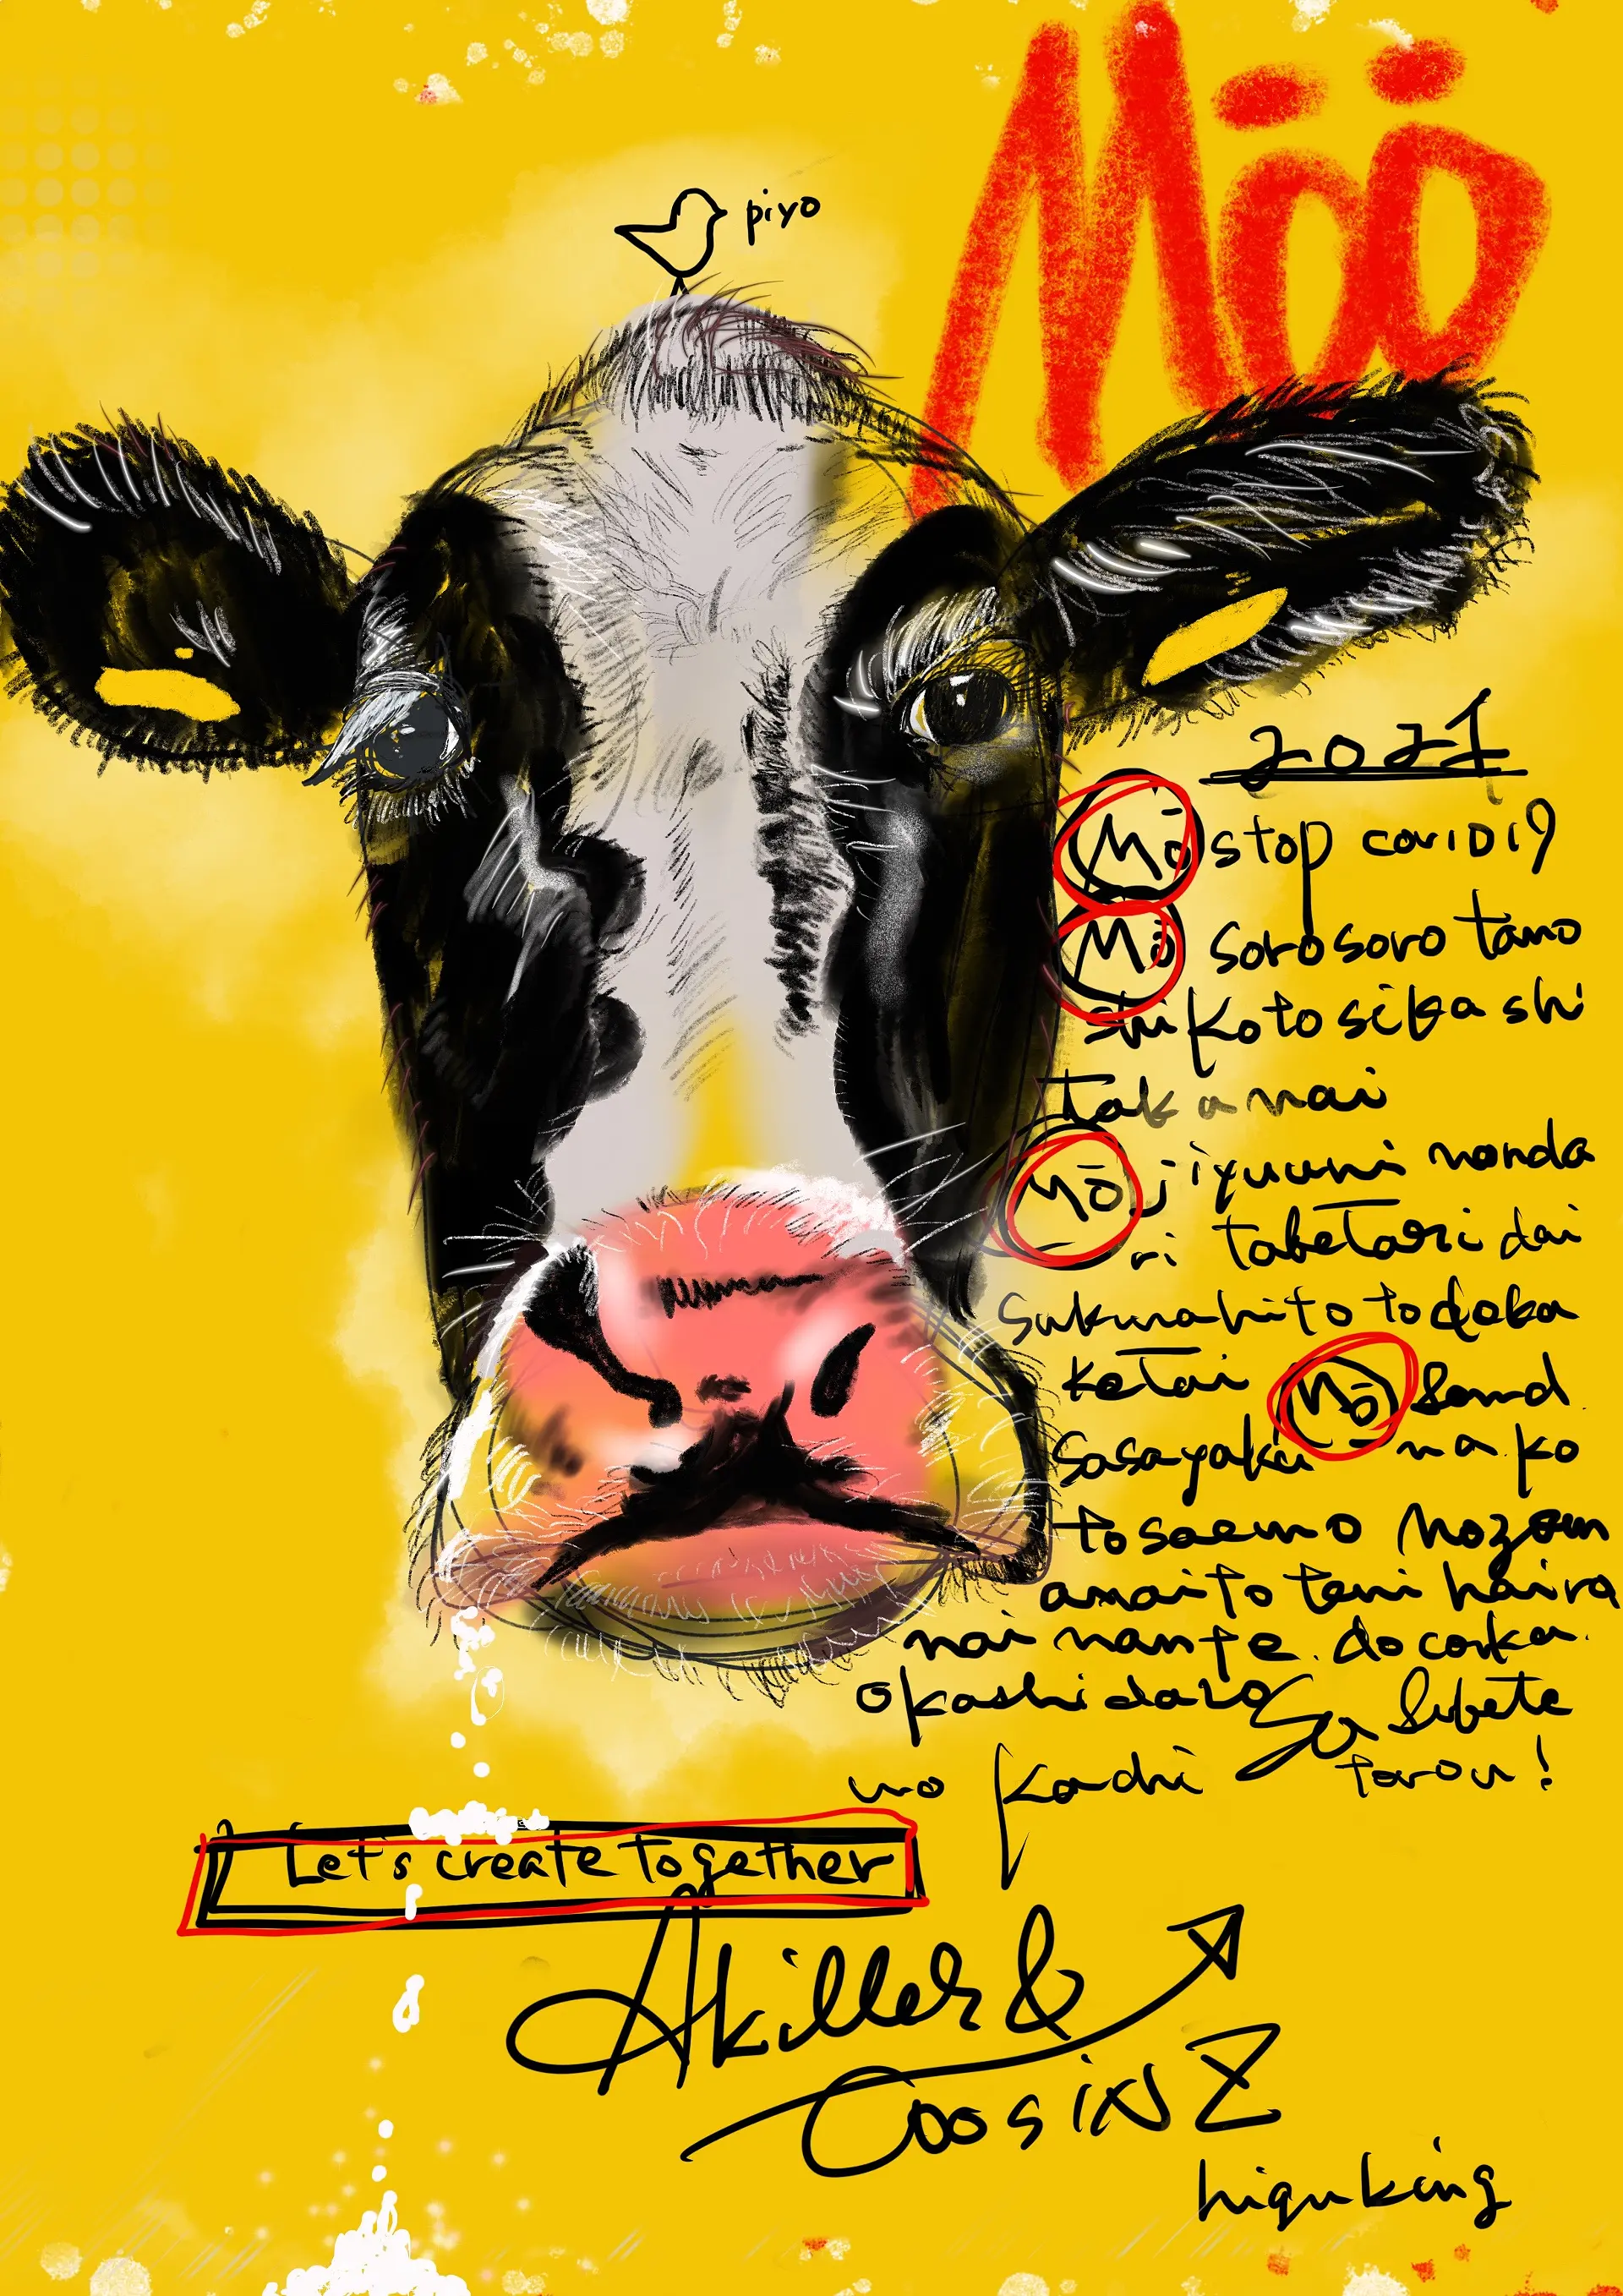 Möö
piyo
2021
Mō stop covid19
Mō sorosoro tano
shikotosikashi
takunai
Mō jiyuuni nonda
ri tabetari dai
sukinahito todoka
ketai Mō Send
sasayaka na ko
tosaemo nozom
amaito teni haira
nai nante docoka
okashidaro Su
wo kachi torou!
Let's create together
Akiller &
COOSiNZ
higuking